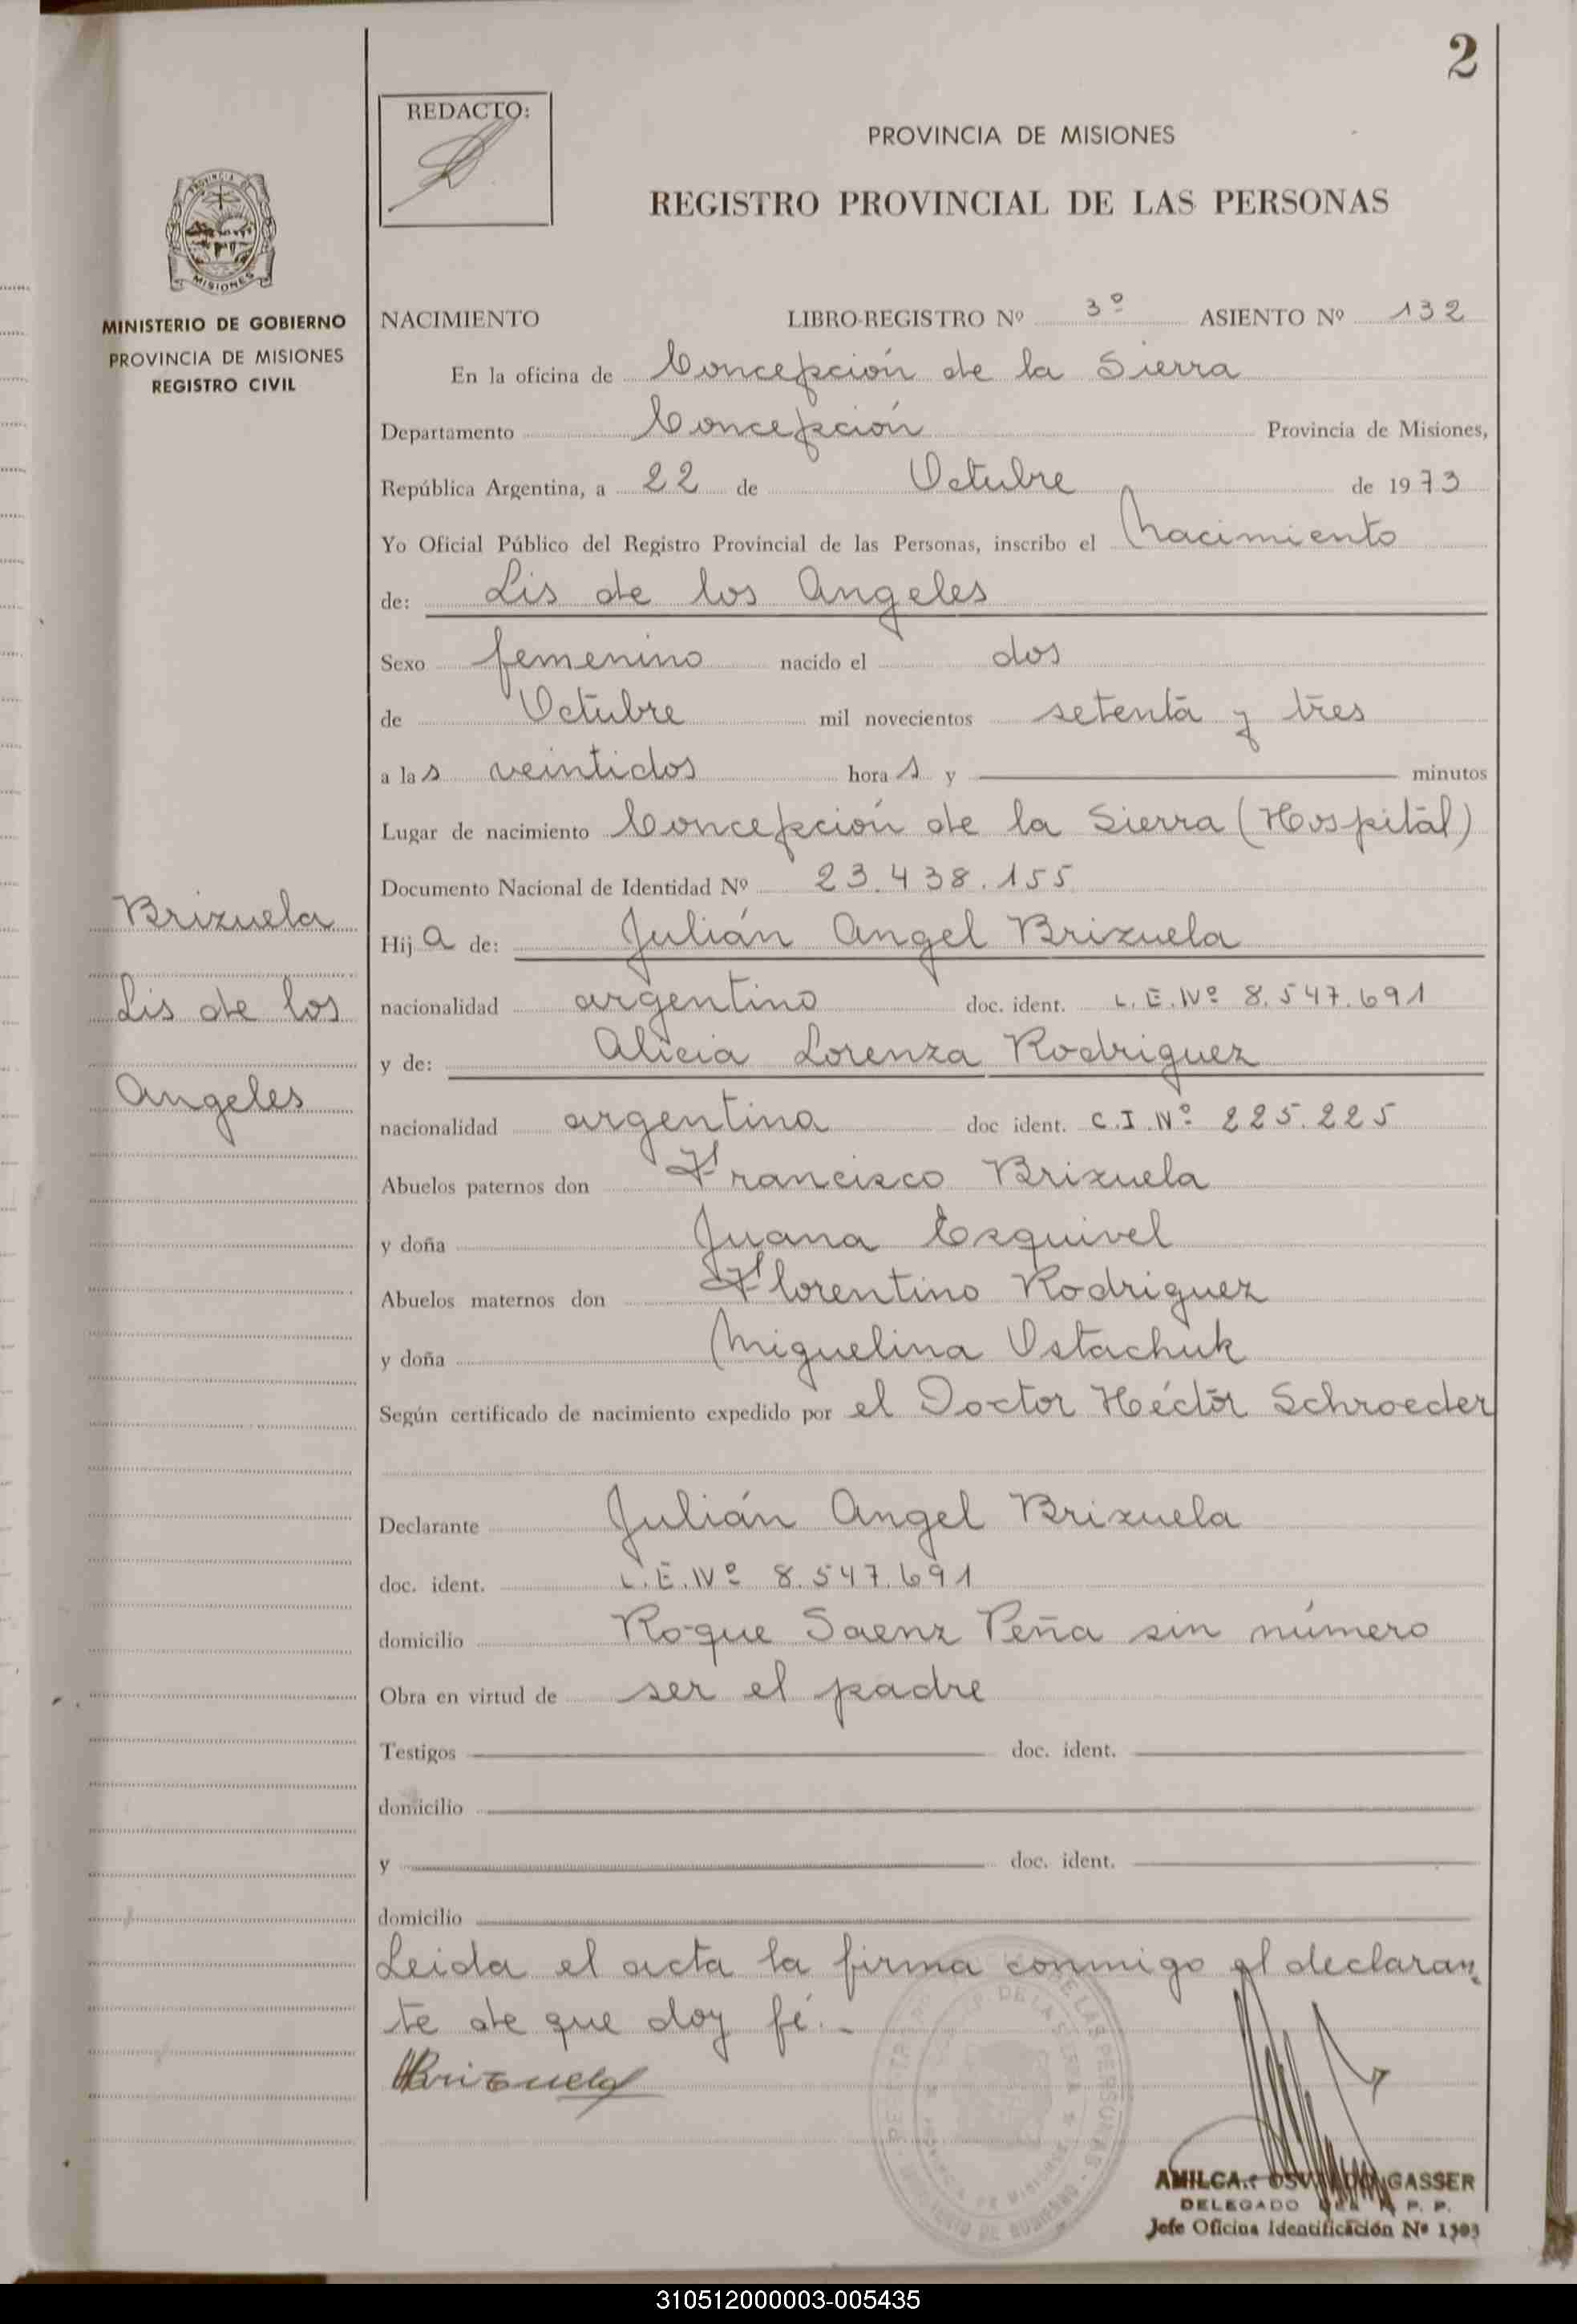 2
REDACTO:
PROVINCIA DE MISIONES
REGISTRO PROVINCIAL DE LAS PERSONAS
MISIONES
MINISTERIO DE GOBIERNO
PROVINCIA DE MISIONES
REGISTRO CIVIL
NACIMIENTO LIBRO-REGISTRO Nº 3º ASIENTO Nº 132
En la oficina de Concepción de la Sierra
Departamento Concepción Provincia de Misiones,
República Argentina, a 22 de Octubre de 1973
Yo Oficial Público del Registro Provincial de las Personas, inscribo el Nacimiento
de: Lis de los Angeles
Sexo femenino nacido el dos
de Octubre mil novecientos setenta y tres
a las veintidos horas y minutos
Lugar de nacimiento Concepción de la Sierra (Hospital)
Documento Nacional de Identidad Nº 23.438.155
Brizuela
Lis de los
Angeles
Hija de: Julián Angel Brizuela
nacionalidad argentino doc. ident. L.E.Nº 8.547.691
y de: Alicia Lorenza Rodriguez
nacionalidad argentina doc ident. C.I.Nº 225.225
Abuelos paternos don Francisco Brizuela
y doña Juana Ezquivel
Abuelos maternos don Florentino Rodriguez
y doña Miguelina Ostachuk
Según certificado de nacimiento expedido por el Doctor Héctor Schroeder
Declarante Julián Angel Brizuela
doc. ident. L.E.Nº 8.547.691
domicilio Roque Saenz Peña sin número
Obra en virtud de ser el padre
Testigos doc. ident.
domicilio
y doc. ident.
domicilio
Leida el acta la firma conmigo el declaran
te de que doy fé.-
Brizuela
GASSER
DELEGADO DEL R. P. P.
Jefe Oficina Identificación Nº 1303
310512000003-005435